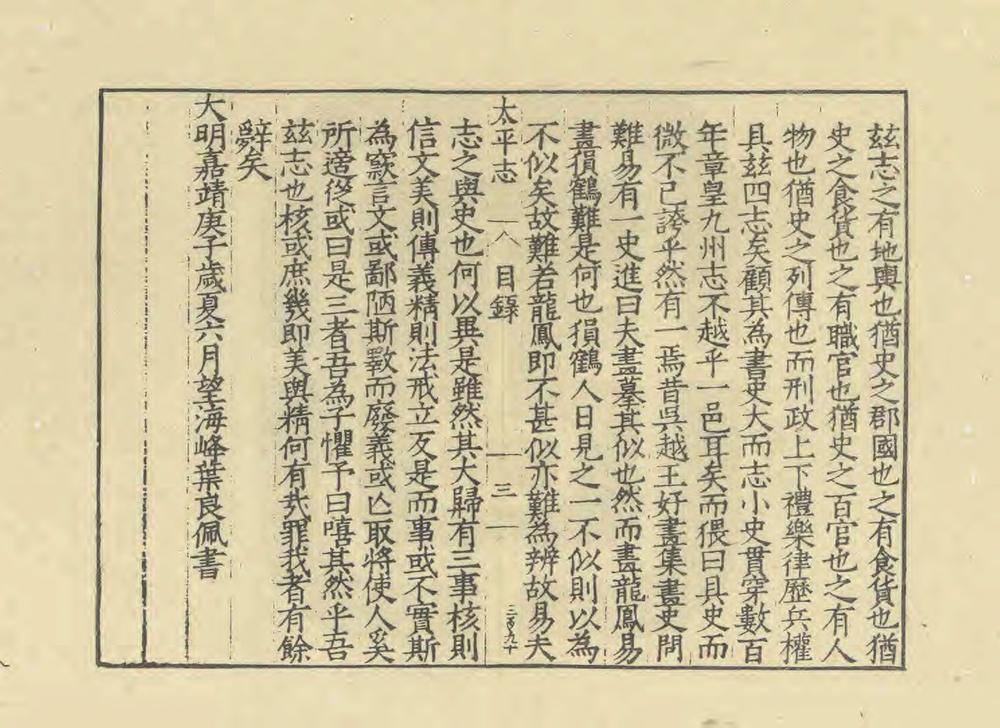 玆志之有地輿也猶史之郡國也之有食貨也猶
史之食貨也之有職官也猶史之百官也之有人
物也猶史之列傳也而刑政上下禮樂律歷兵權
具玆四志矣顧其為書史大而志小史貫穿數百
年章皇九州志不越乎一邑耳矣而猥曰具史而
微不已誇乎然有一焉昔吳越王好畫集畫史問
難易有一史進曰夫畫摹其似也然而畫龍鳳易
畫損鶴難是何也損鶴人日見之一不似則以為
不似矣故難若龍鳳即不甚似亦難為辨故易夫
太平志 八 目錄 三 三百九十
志之與史也何以異是雖然其大歸有三事核則
信文美則傳義精則法戒立反是而事或不實斯
為窾言文或鄙陋斯斁而廢義或亾取將使人奚
所適從或曰是三者吾為子懼予曰嘻其然乎吾
玆志也核或庶幾即美與精何有哉罪我者有餘
辭矣
大明嘉靖庚子歲夏六月望海峰葉良佩書